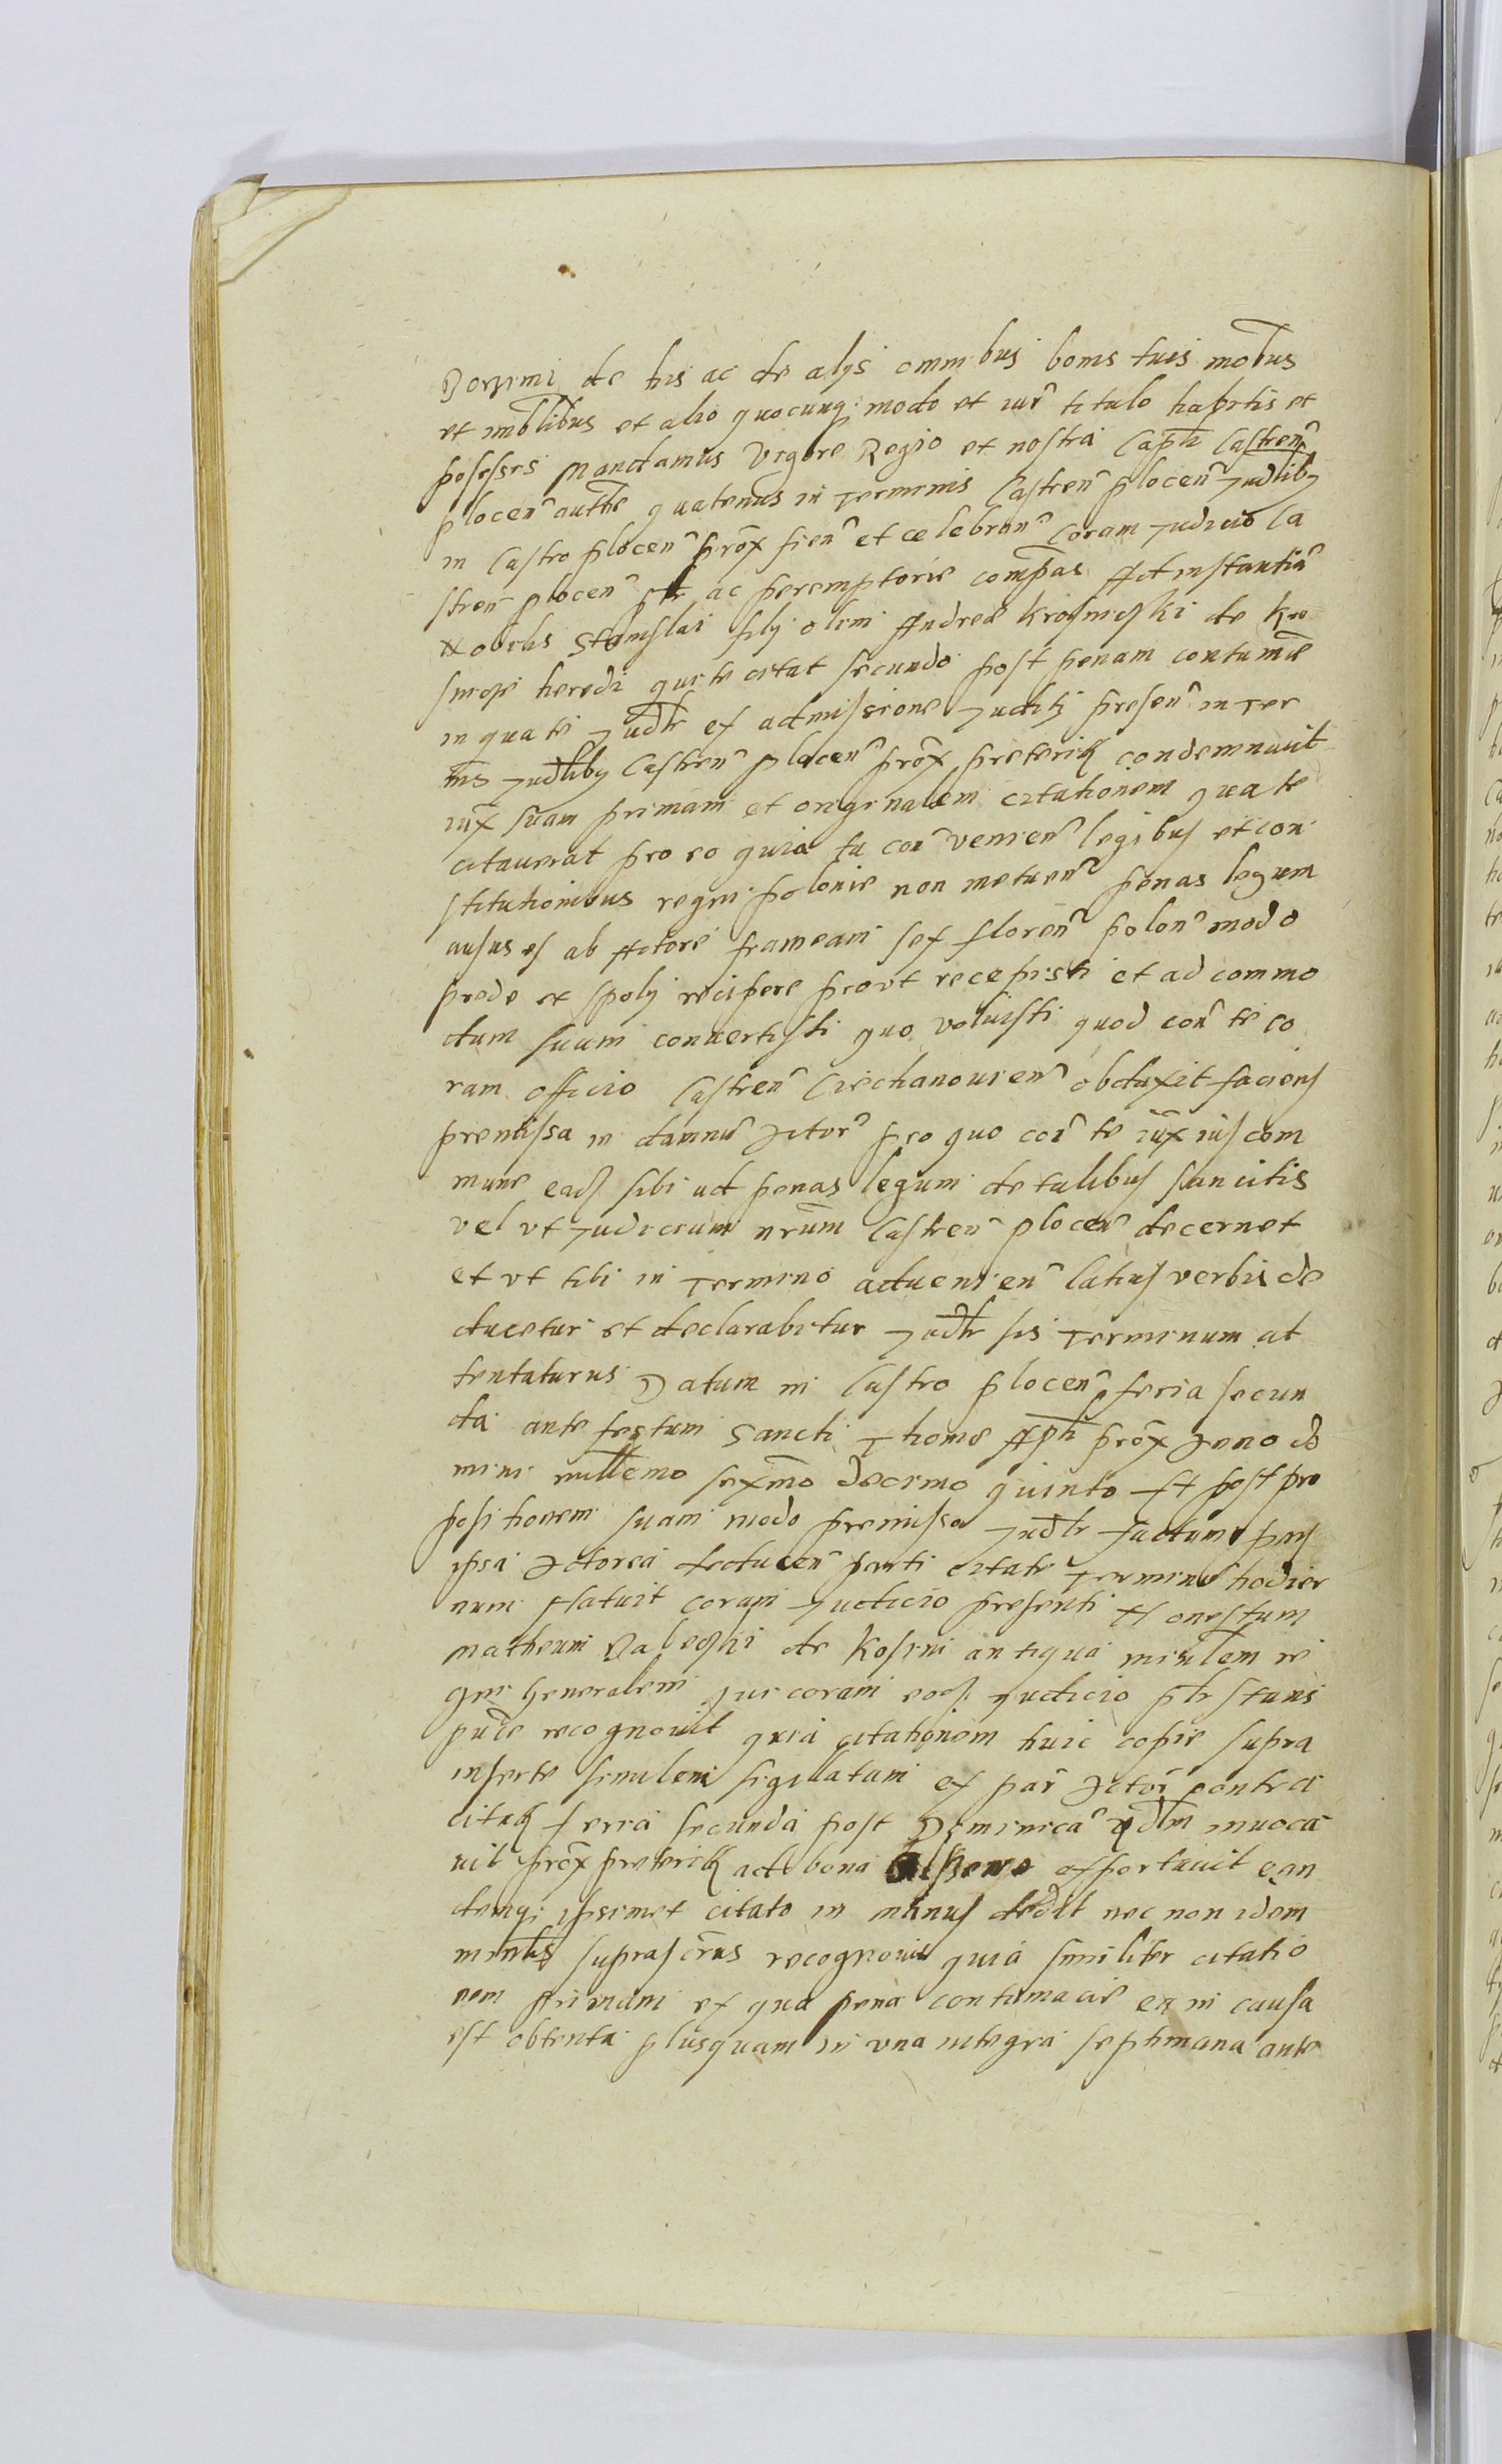 de his ac de alys omnibus bonis tuis mobus
et imblibus et alio quocunq modo et iur titulo habitis et
posessis Mandamus Vigore Regio et nostra Capli Castren
plocen authe quatenus in Terminis Castren plocen Judlibg
in Castro plocen prox fien et celebran Coram Judicio Ca
stren plocen ptr ac peremptorie compas Ad instantia
Nobilis Stanislai fily olim Andreæ Krosnieski de Kro
heredi qui te citat secundo post penam contumie
in qua te Judlr ex admissione Judity presen in Ter
nis Judlibg Castren plocen prox preterit condemnauit
iux suam primam et originalem citationem qua te
citauerat pro eo quia tu con venien legibus et con
stitutionibus regni polonie non metuen penas legum
ausus es ab Actore frameam sex floren polon modo
prede et spoly recipere prout recepisti et ad commo
dum suum conuertisti quo voluisti quod con te co
ram officio Castren Ciechanouien obduxit faciens
premissa in damnu Actor pro quo con te iux ius com
mune eads sibi ad penas legum de talibus sancitis
vel vt Judicium nrum Castren plocen decernet
et vt tibi in Termino aduenien latius verbis de
ducetur et declarabitur Judlr sis Terminum at
tentaturus Datum in Castro plocen feria secun
da ante festum Sancti Thome Apli prox Anno do
mini millemo sexmo decimo quinto Et post pro
positionem suam modo premisso Judlr factum pars
ipsa Actorea deducen parti citate Terminu hodier
num statuit coram Judicio presenti Honestum
Matheum de Kosmi antiqua minlem re
gni Generalem qui coram eods Judicio ptr stans
puce recognouit quia citationem huic copie supra
inserte similem sigillatam ex par Actor contra
citat feria secunda post Dominica inuoca
uit prox preterit ad bona exportauit ean
demq ipsimet citato in manus dedit nec non idem
minlis suprascrius recognouit quia similiter citatio
nem primam ex qua pena contumacie en in causa
est obtenta plusquam in vna integra septimana ante